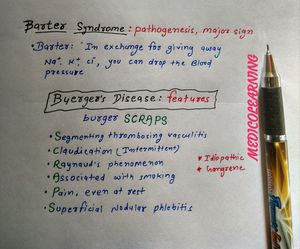 Barter Syndrome: pathogenesis, major sign
• Barter: In exchange for giving away
Na⁺, K⁺, Cl⁻, you can drop the Blood
pressure
Buerger's Disease: features
burger SCRAPS
• Segmenting thrombosing vasculitis
• Claudication (Intermittent)
• Raynaud's phenomenon
• Associated with smoking
• Pain, even at rest
• Superficial nodular phlebitis
* Idiopathic
* Gangrene
MEDICOLEARNING